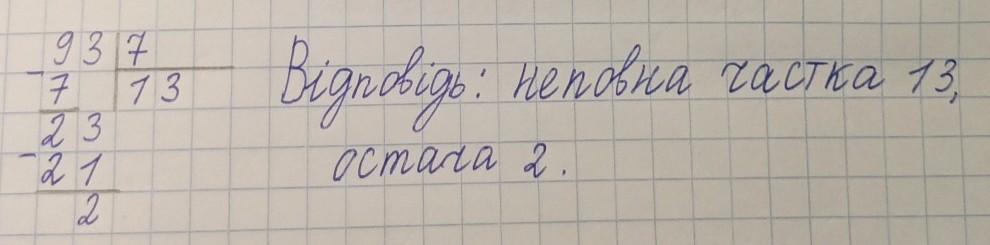 93 7
- 7 13
23
- 21
2
Відповідь: неповна частка 13,
остача 2.